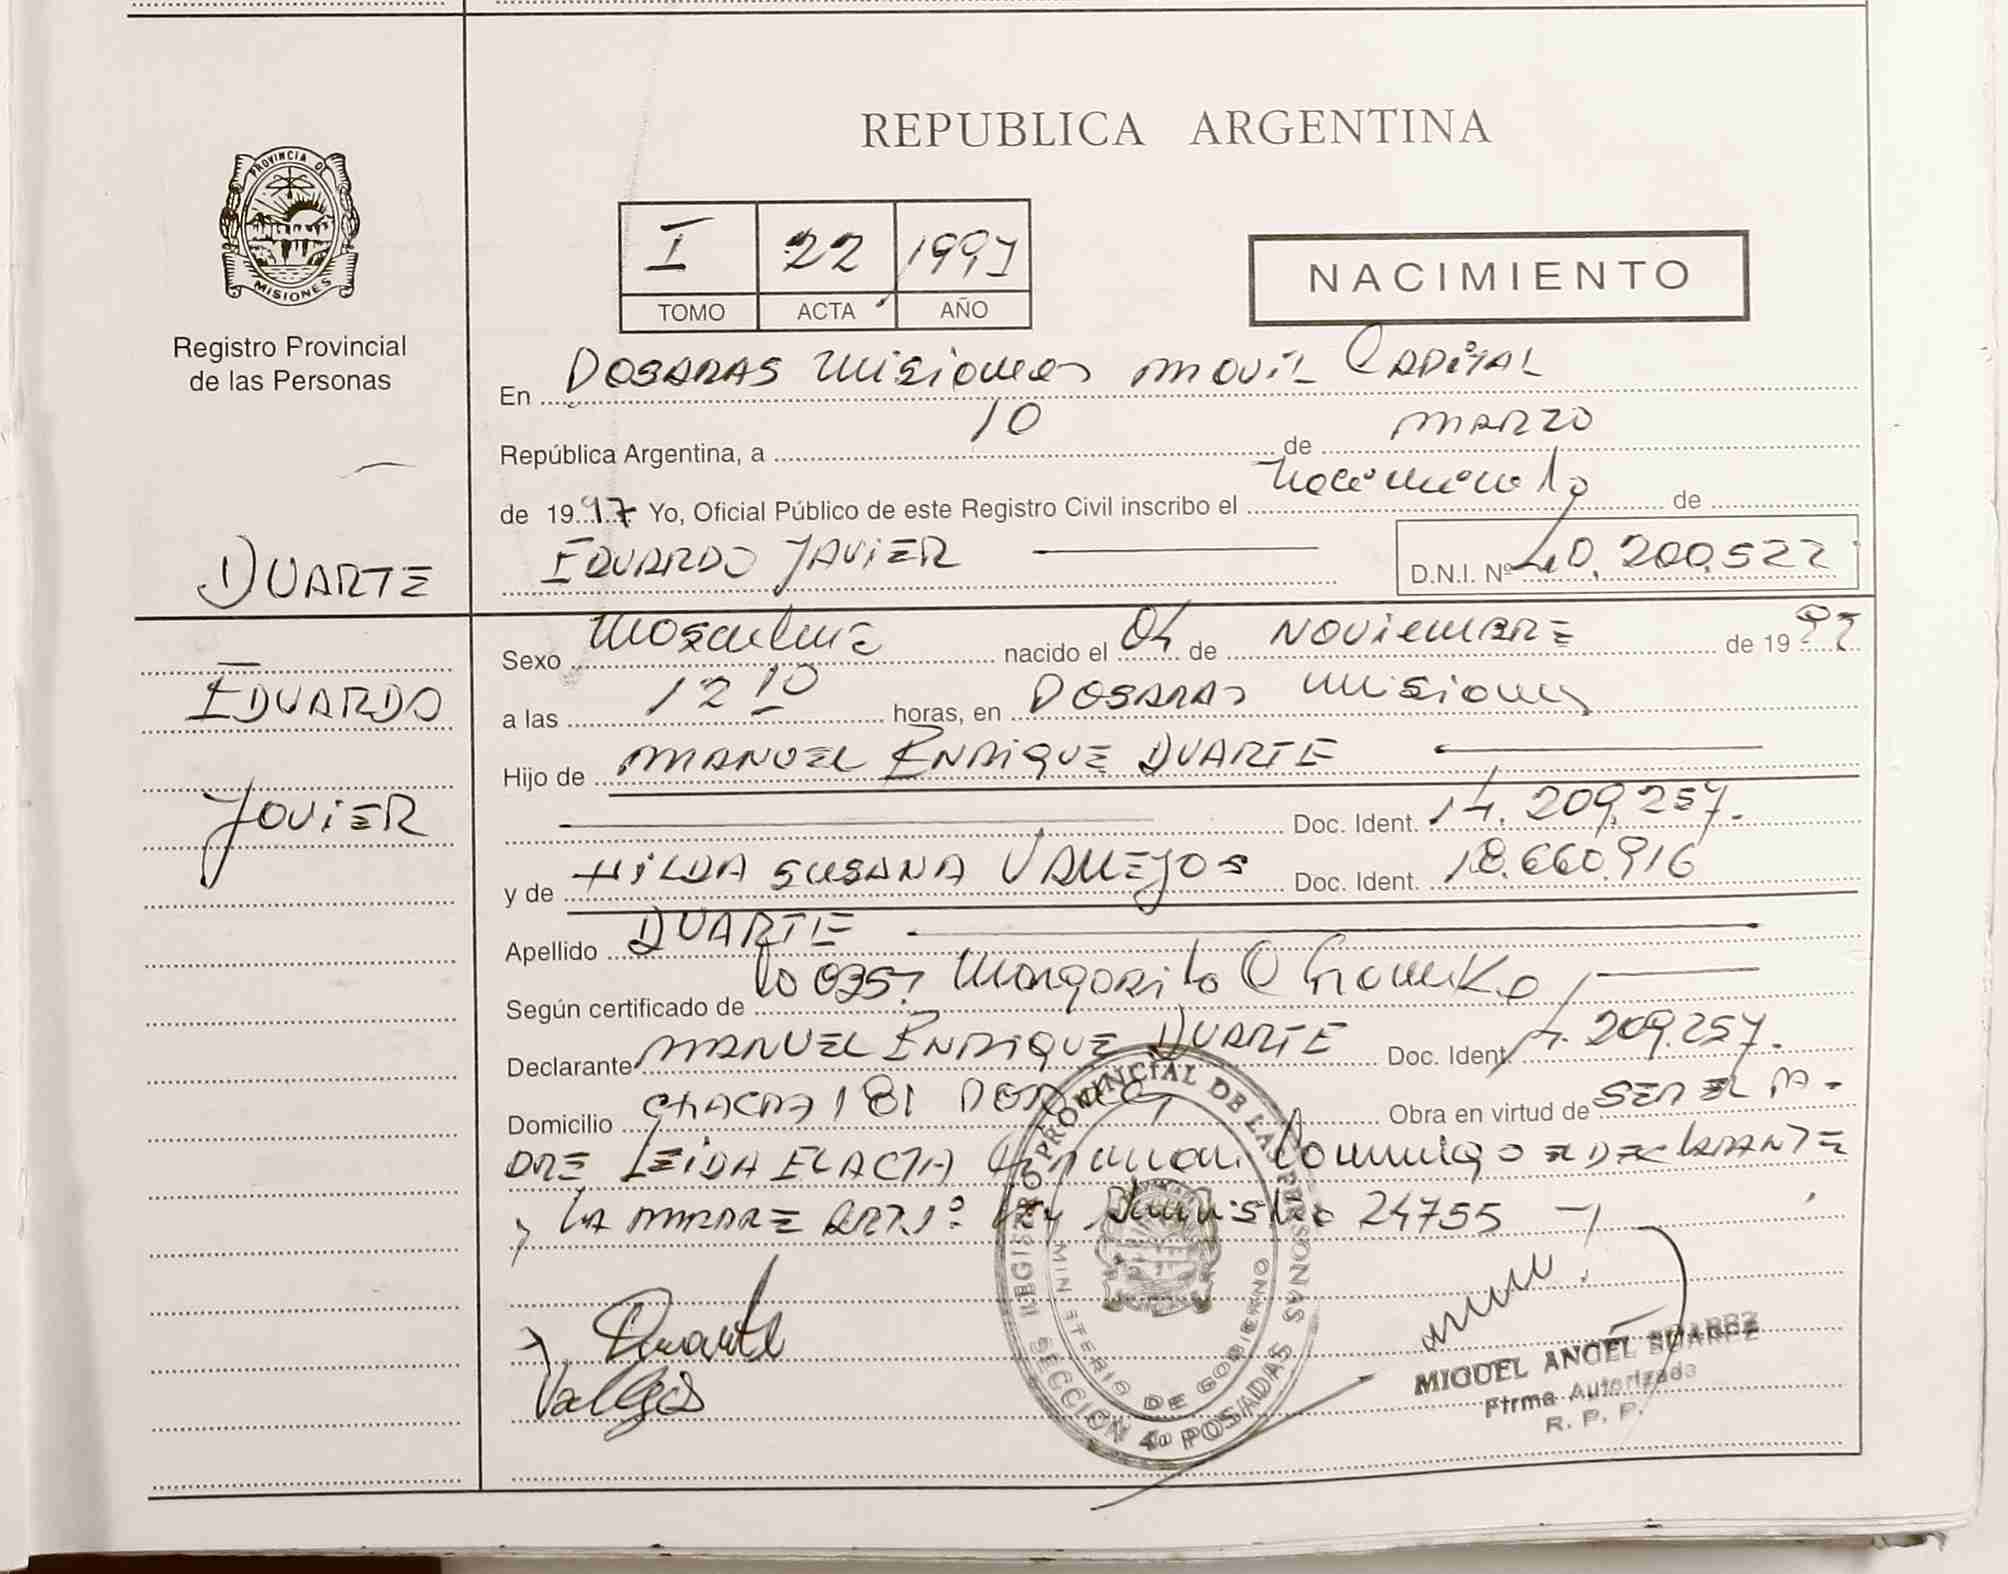 REPUBLICA ARGENTINA
PROVINCIA DE
MISIONES
Registro Provincial
de las Personas
I 22 1997
TOMO ACTA AÑO
NACIMIENTO
En POSADAS MISIONES MOVIL CAPITAL
República Argentina, a 10 de MARZO
de 19 97 Yo, Oficial Público de este Registro Civil inscribo el nacimiento de
EDUARDO JAVIER D.N.I. Nº 40.200.522
DUARTE
EDUARDO
JAVIER
Sexo Masculino nacido el 04 de NOVIEMBRE de 19
a las 12 10 horas, en POSADAS MISIONES
Hijo de MANUEL ENRIQUE DUARTE
Doc. Ident. 14.209.257.
y de HILDA SUSANA VALLEJOS Doc. Ident. 18.660.916
Apellido DUARTE
Según certificado de Margarita
Declarante MANUEL ENRIQUE DUARTE Doc. Ident. 14.209.257.
Domicilio CHACRA 181 Obra en virtud de SER EL PA-
DRE LEIDA EL ACTA firman conmigo EL DECLARANTE
y LA MADRE ART. 1º 24755
Duarte
Vallejos
REGISTRO PROVINCIAL DE LAS PERSONAS
MINISTERIO DE GOBIERNO
SECCION 4a POSADAS
MIGUEL ANGEL SUAREZ
Firma Autorizada
R. P. P.